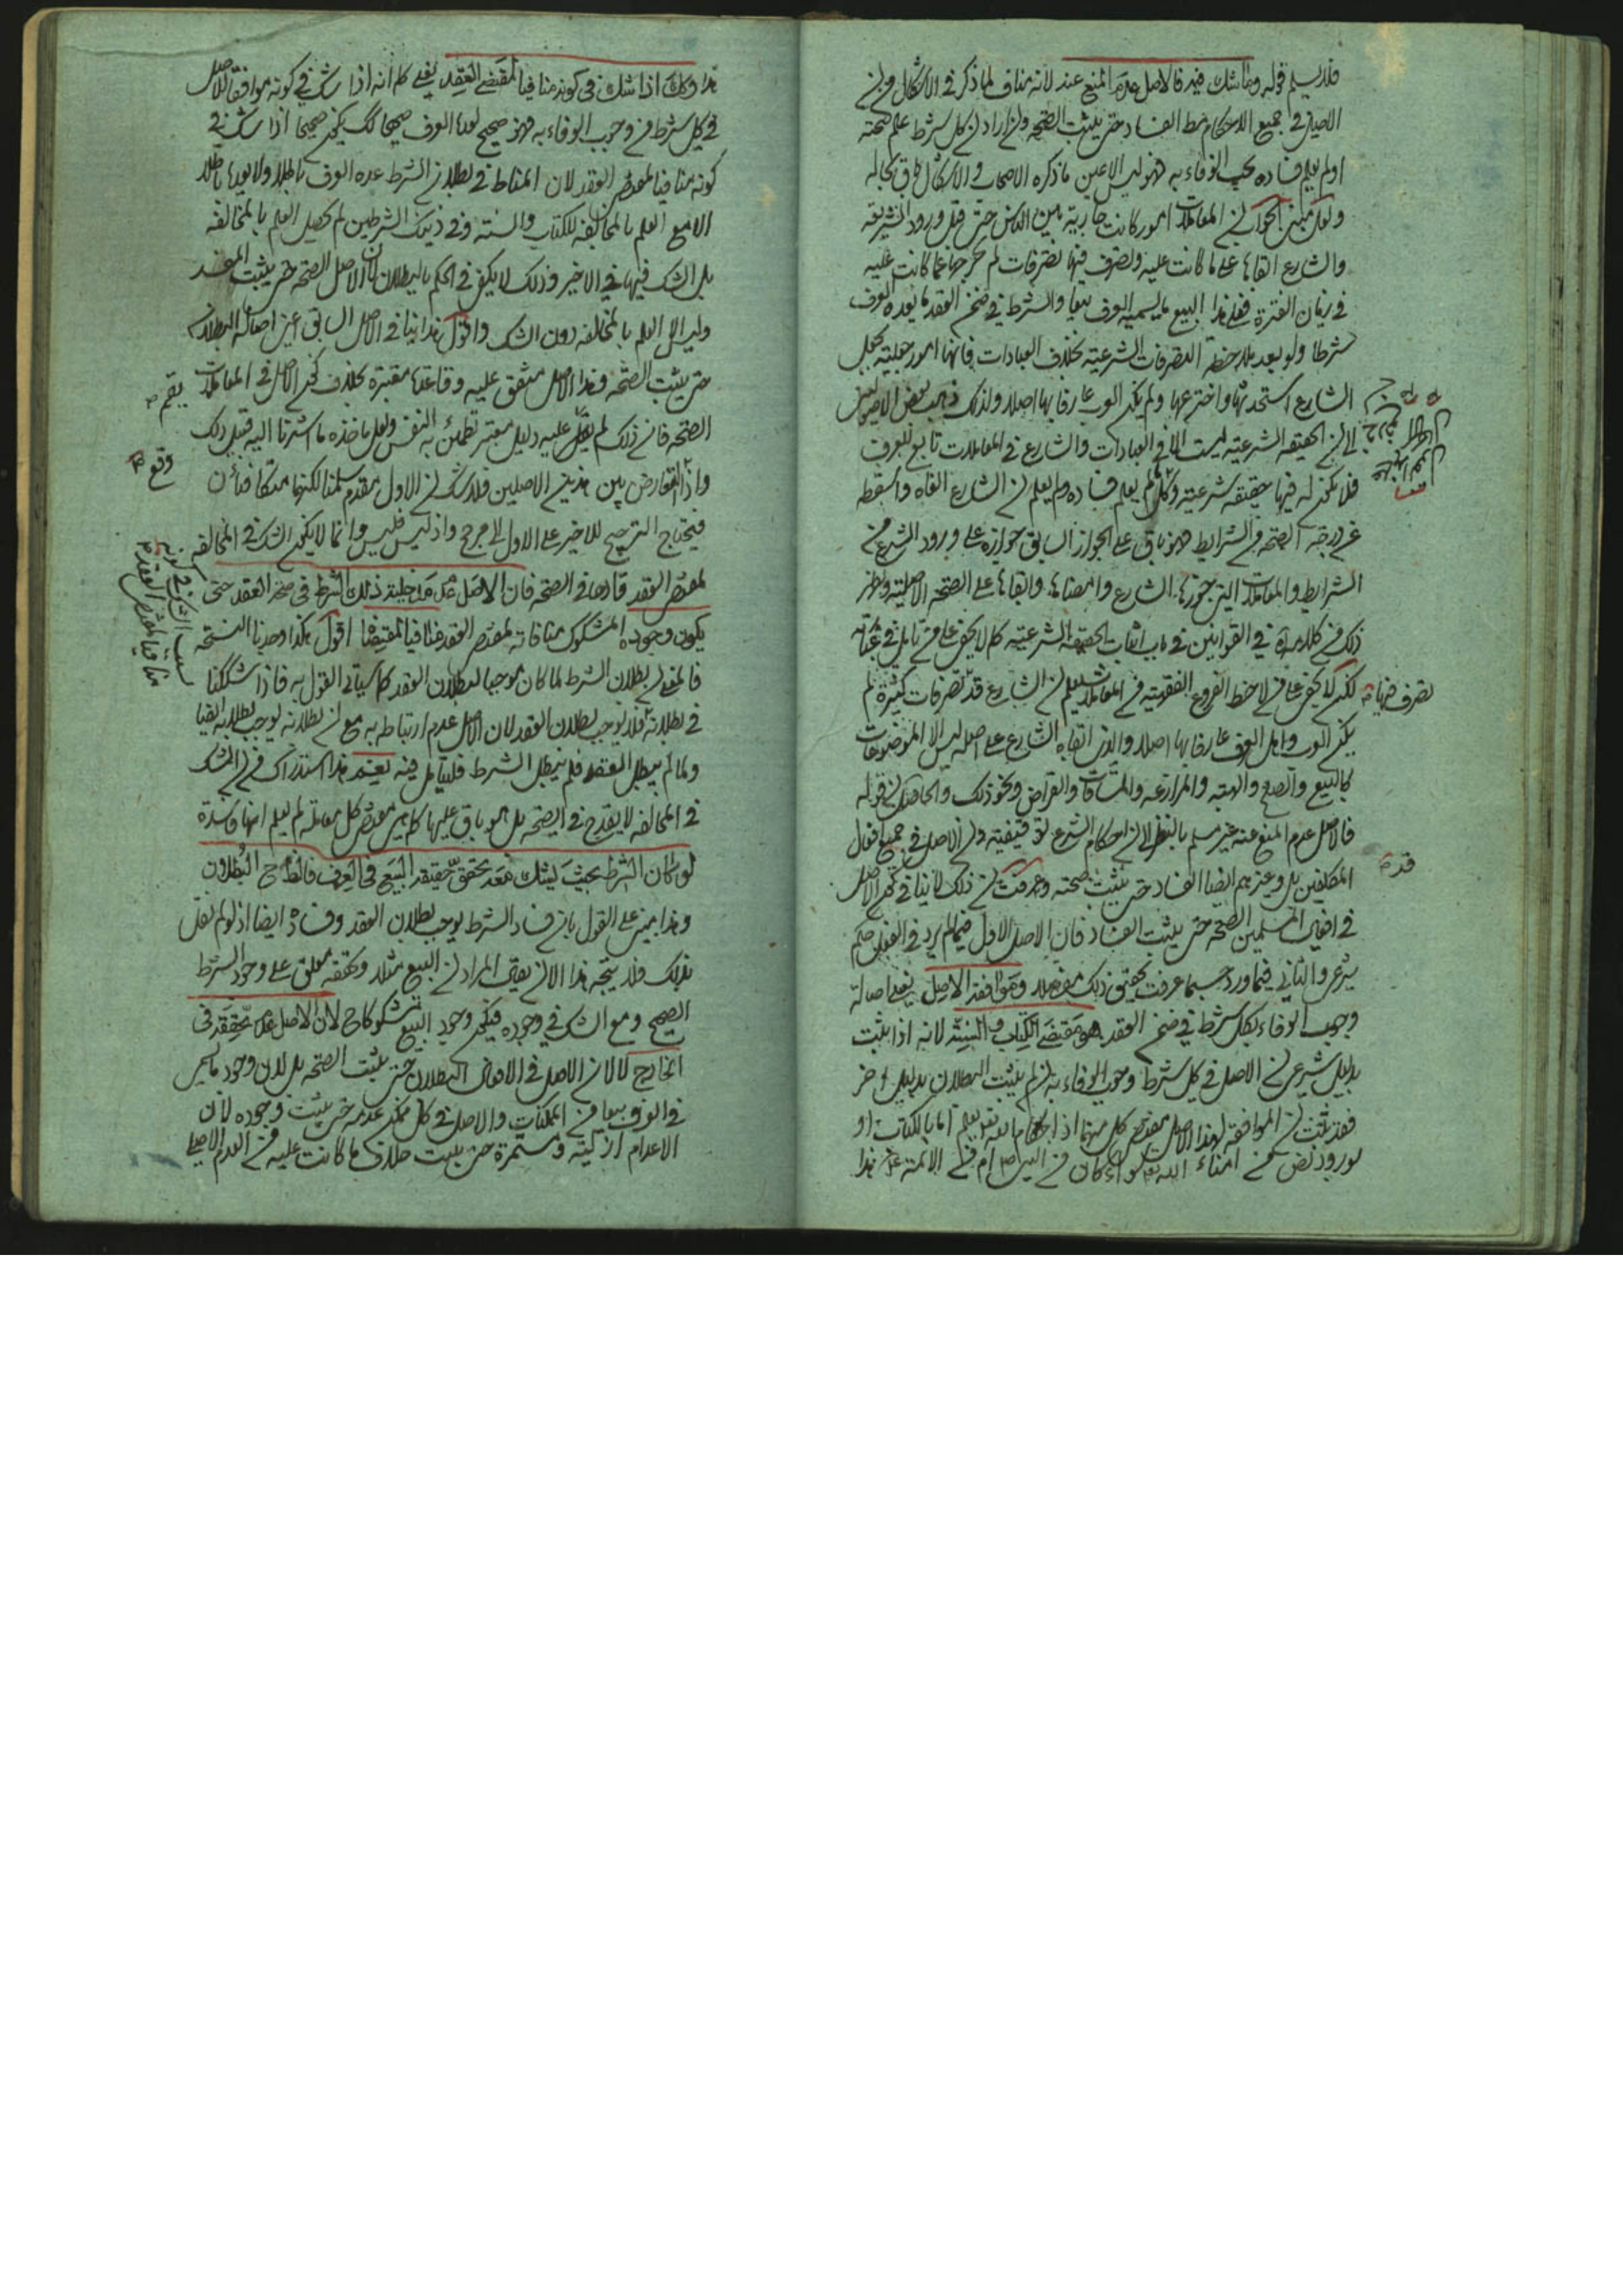 فلا يسلم قوله وما شك فيه فالاصل عدم المنع عنه لانه مناف لما ذكر في الاشكال من ان
الاصل في جميع الاحكام الفساد حتى يثبت الصحة وان اراد ان كل شرط علم صحته
او لم يعلم فساده يجب الوفاء به فهو ليس الا عين ما ذكره الاصحاب والاشكال باق بحاله
ولعل مبنى الجواز ان المعاملات امور كانت جارية بين الناس حتى قبل ورود الشريعة
والشارع ابقاها على ما كانت عليه وتصرف فيها تصرفات لم يخرجها عما كانت عليه
في زمان الفترة فعلى هذا البيع ما يسميه العرف بيعا والشرط في ضمن العقد ما يعده العرف
شرطا ولو بعد ملاحظة التصرفات الشرعية بخلاف العبادات فانها امور جعلية بجعل
الشارع استحدثها واخترعها ولم يكن العرب عارفا بها اصلا ولذلك ذهب بعض الاصوليين
الى ان الحقيقة الشرعية ليست الا في العبادات والشارع في المعاملات تابع للعرف
فلا يكون له فيها حقيقة شرعية وكلما لم يعلم فساده ولم يعلم ان الشارع القاه واسقطه
عن درجة الصحة من الشرايط فهو باق على الجواز السابق جوازه على ورود الشرع من
الشرايط والمعاملات التي جوزها الشارع وامضاها وابقاها على الصحة الاصلية ويظهر
ذلك من كلامه في القوانين في باب اثبات الحقيقة الشرعية كما لا يخفى على من تامل في
لكن لا يخفى على من لاحظ الفروع الفقهية في المعاملات يعلم ان الشارع قد تصرفات كثيرة لم
تصرف فيها
يكن العرب واهل العرف عارفا بها اصلا والذي ابقاه الشارع على اصله ليس الا الموضوعات
كالبيع والصلح والهبة والمزارعة والمساقات والقراض ونحو ذلك والحاصل ان قوله
فالاصل عدم المنع عنه غير مسلم بالنظر الى ان احكام الشرع توقيفية وان الاصل في جميع افعال
المكلفين بل وغيرهم ايضا الفساد حتى يثبت صحته وعرفت ان ذلك لا ينافي كون الاصل
في افعال المسلمين الصحة حتى يثبت الفساد فان الاصل الاول فيما لم يرد في الفعل حكم
شرعي والثاني فيما ورد حسبما عرفت تحقيق ذلك مفصلا وموافقة الاصل يعني اصالة
وجوب الوفاء بكل شرط في ضمن العقد هو مقتضى الكتاب والسنة لانه اذا ثبت
بدليل شرعي ان الاصل في كل شرط وجوب الوفاء به ان لم يثبت البطلان بدليل آخر
فقد ثبت ان الموافقة لهذا الاصل مقتضى كل منهما اذ احكام الله تعالى يعلم اما بالكتاب او
لورود نص من امناء الله سواء كان من النبي ص ام من الائمة ع هذا
هذا وكك اذا شك في كونه منافيا لمقتضى العقد يعني كما انه اذا شك في كونه موافقا للاصل
في كل شرط من وجوب الوفاء به فهو صحيح لو عده العرف صحيحا كك يكون صحيحا اذا شك في
كونه منافيا لمقتضى العقد لان المناط في بطلان الشرط عده العرف باطلا ولا يعده باطلا
الا مع العلم بالمخالفة للكتاب والسنة وفي ذينك الشرطين لم يحصل العلم بالمخالفة
بل الشك فيها في الاخير وذلك لا يكفي في الحكم بالبطلان لان الاصل الصحة حتى يثبت المفسد
وليس الا العلم بالمخالفة دون الشك واقول هذا ينافي الاصل السابق اعني اصالة البطلان
حتى يثبت الصحة وهذا الاصل متفق عليه وقاعدة معتبرة بخلاف كون الاصل في المعاملات
الصحة فان ذلك لم يقم عليه دليل معتبر تطمئن به النفس ولعل ماخذه ما اشرنا اليه قبيل ذلك
يقم
واذا وقع التعارض بين هذين الاصلين فلا شك ان الاول مقدم سلمنا لكنهما متكافئان
وقع
فيحتاج الترجيح للاخير على الاول الى مرجح واذ ليس فليس وانما لا يكون الشك في المخالفة
لمقتضى العقد قادحا في الصحة فان الاصل عدم مدخلية ذلك الشرط في صحة العقد حتى
بسبب الشك في كونه منافيا لمقتضى العقد
يكون وجوده المشكوك منافاته لمقتضى العقد منافيا لمقتضاها اقول هكذا وجدنا النسخة
فالمعنى ان بطلان الشرط لما كان موجبا لبطلان العقد كما سيأتي القول به فاذا شككنا
في بطلانه فلا يوجب بطلان العقد لان الاصل عدم ارتباطه به مع ان بطلانه يوجب بطلانه ايضا
ولما لم يبطل العقد فلم يبطل الشرط فليتأمل فيه نعم هذا استدراك من ان الشك
في المخالفة لا يقدح في الصحة بل هو باق عليها كما هي مقتضى كل معاملة لم يعلم انها فاسدة
لو كان الشرط بحيث يشك معه تحقق حقيقة البيع في العرف فالظاهر ح البطلان
وهذا مبني على القول بان فساد الشرط يوجب بطلان العقد وفساده ايضا اذ لو لم نقل
بذلك فلا يتجه هذا الا ان يقال المراد ان البيع مثلا وتحققه معلق على وجود الشرط
الصحيح ومع الشك في وجوده فيكون وجود البيع مشكوكا ح لان الاصل عدم تحققه في
الخارج لا لان الاصل في الافعال البطلان حتى يثبت الصحة بل لان وجود ما يسمى
في العرف بيعا من الممكنات والاصل في كل ممكن عدمه حتى يثبت وجوده لان
الاعدام ازلية ومستمرة حتى يثبت خلاف ما كانت عليه من العدم الاصلي